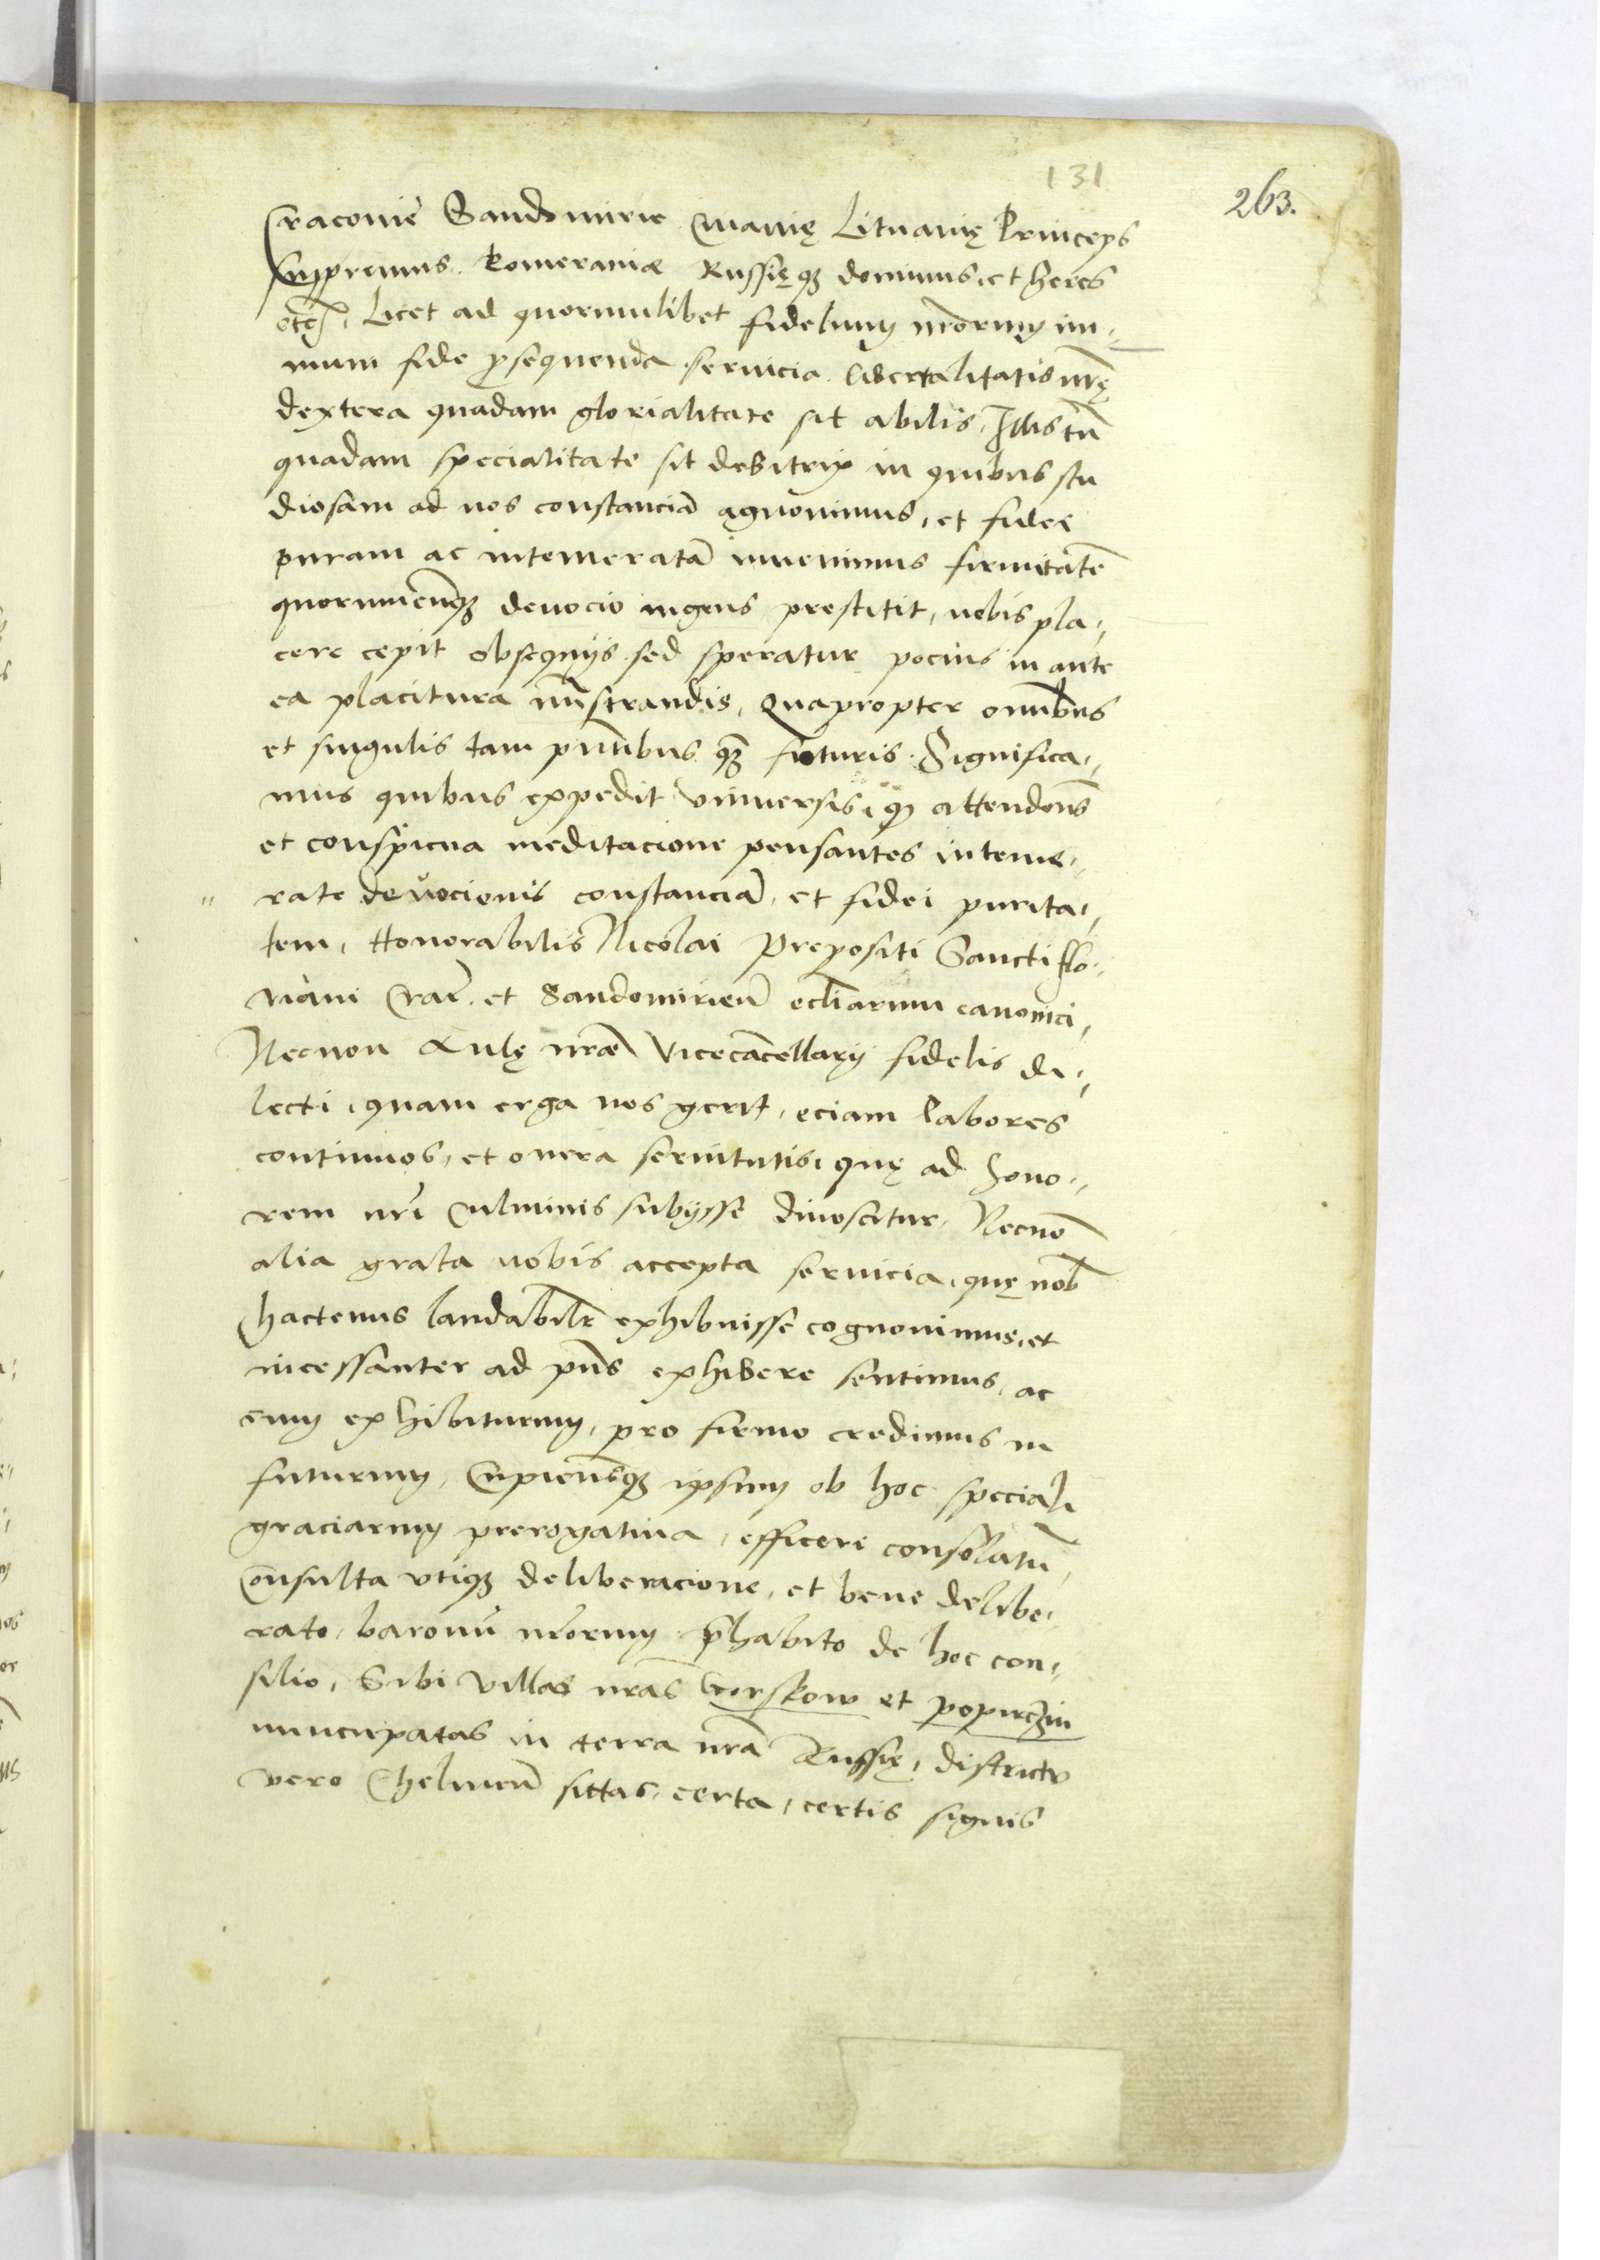 131
263.
Cracoviẽ Sandomirie Cuiavię Lituanię Princeps
Suppremus. Pomeraniæ Russięqȝ dominus, et heres
etc̃. Licet ad quorumlibet fidelium nr̃orum im-
mum fide ꝑsequenda servicia liberalitatis nr̃ę
dextera quadam glorialitate sit abilis, Illis tñ
quadam specialitate sit debitrix in quibus stu
diosam ad nos constanciã agnovimus, et fidei
puram ac intemeratã invenimus firmitatẽ
quorumcũqȝ devocio ingens prestitit, nobis pla-
cere cepit obsequiis sed speratur pocius in ante
ea placitura mĩstrandis, Quapropter omĩbus
et singulis tam pñtibus qȝ futuris. Significa-
mus quibus expedit universis, qȝ attendentes
et conspicua meditacione pensantes inteme-
rate devocionis constanciã, et fidei purita-
tem, Honorabilis Nicolai Prepositi Sancti flo-
riani Crac̃. et Sandomirieñ eccliarum canonici,
Necnon Aulę nr̃æ Vicecãcellarij fidelis di-
lecti, quam erga nos gerit, eciam labores
continuos, et onera servitutis, quę ad hono-
rem nr̃i culminis subijsse dinoscitur, Necnõ
alia grata nobis accepta servicia, quę nob̃
hactenus laudabilr̃ exhibuisse cognovimus, et
incessanter ad pñs exhibere sentimus, ac
eum exhibiturum, pro firmo credimus in
futurum, Cupientesqȝ ipsum ob hoc speciali
graciarum prerogativa, efficere consolatũ,
Consulta utiqȝ deliberacione, et bene delibe-
rato, baronũ nr̃orum p̃habito de hoc con-
silio, Sibi villas nr̃as Gorskow et poperczin
nuncupatas in terra nr̃a Russię, districtu
vero Chelmeñ sittas, certa, certis signis